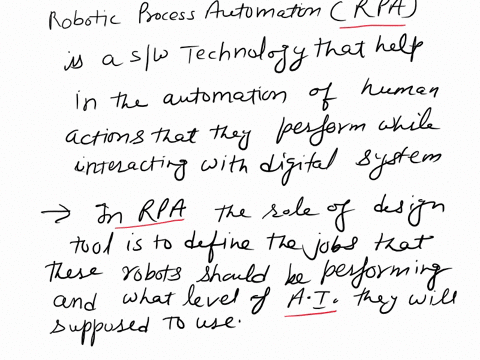 Robotic Process Automation (RPA)
is a s/w Technology that help
in the automation of human
actions that they perform while
interacting with digital system
→ In RPA the role of design
tool is to define the jobs that
these robots should be performing
and what level of A.I. they will
supposed to use.